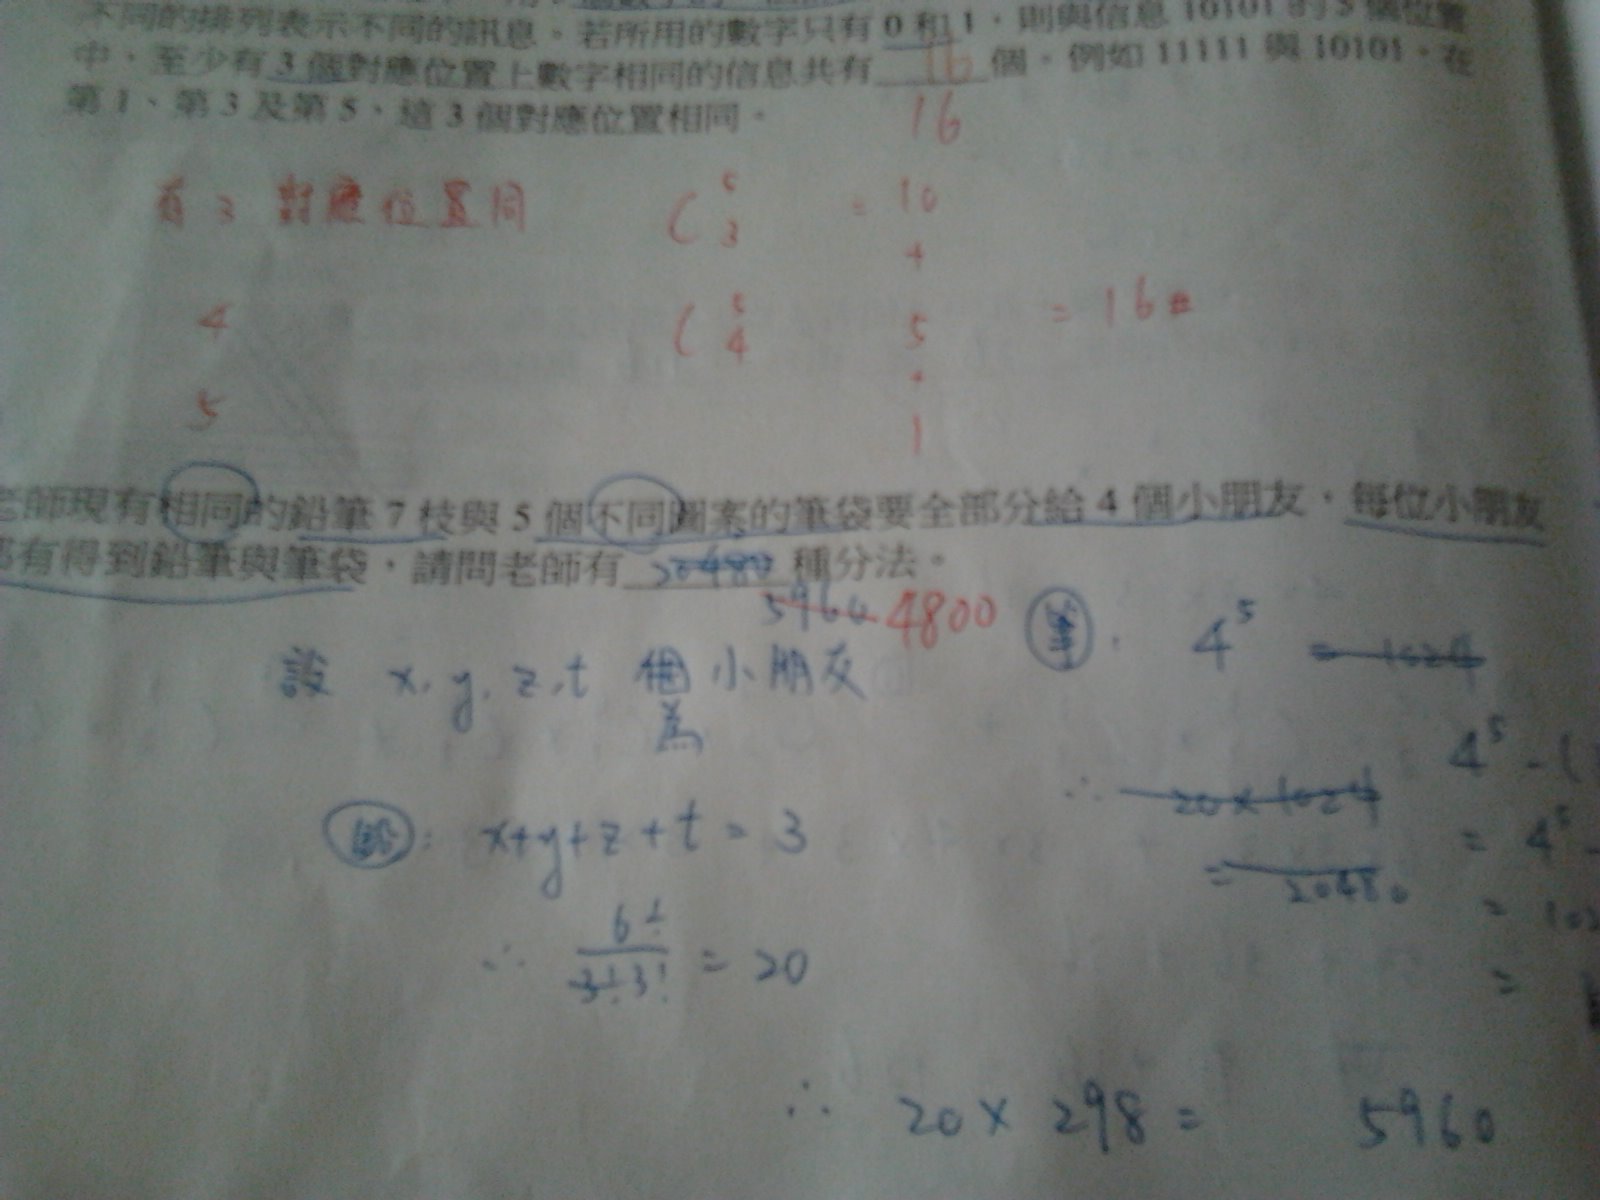 不同的排列表示不同的訊息。若所用的數字只有 0 和 1，則與信息 10101 的 5 個位置
中，至少有 3 個對應位置上數字相同的信息共有 16 個。例如 11111 與 10101，在
第 1、第 3 及第 5、這 3 個對應位置相同。
16
有 3 對應位置同 C 5 3 = 10
+
4 C 5 4 5 = 16
+
5 1
老師現有相同的鉛筆 7 枝與 5 個不同圖案的筆袋要全部分給 4 個小朋友，每位小朋友
都有得到鉛筆與筆袋，請問老師有 20480 種分法。
5960 4800
設 x, y, z, t 為 小朋友
筆: 4^5 = 1024
4^5 - (
鉛: x+y+z+t = 3
∴ 20 x 1024
= 4^5 -
= 20480
∴ 6! / 3!3! = 20
= 102
=
∴ 20 x 298 = 5960